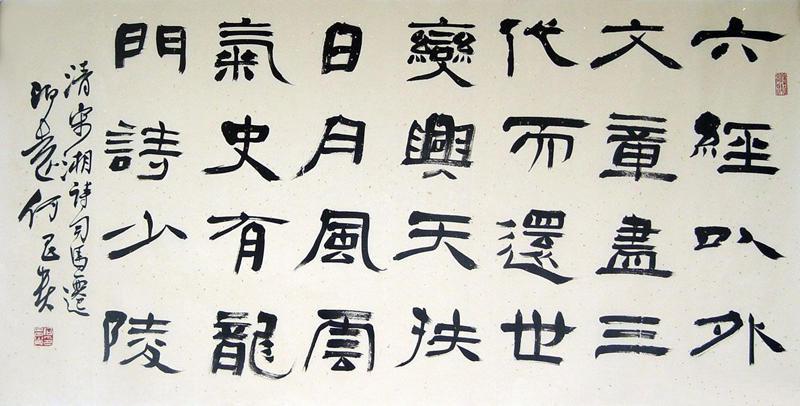 六經以外
文章盡三
代而還世
變興天挟
日月風雲
氣史有龍
門詩少陵
清宋湘詩司馬遷
何